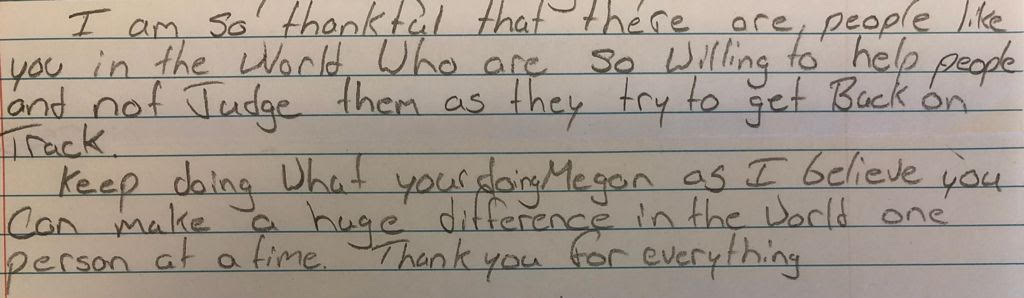 I am so thankful that there are, people like
you in the World Who are so Willing to help people
and not Judge them as they try to get Back on
Track.
Keep doing What your doing Megan as I believe you
Can make a huge difference in the World one
person at a time. Thank you for everything